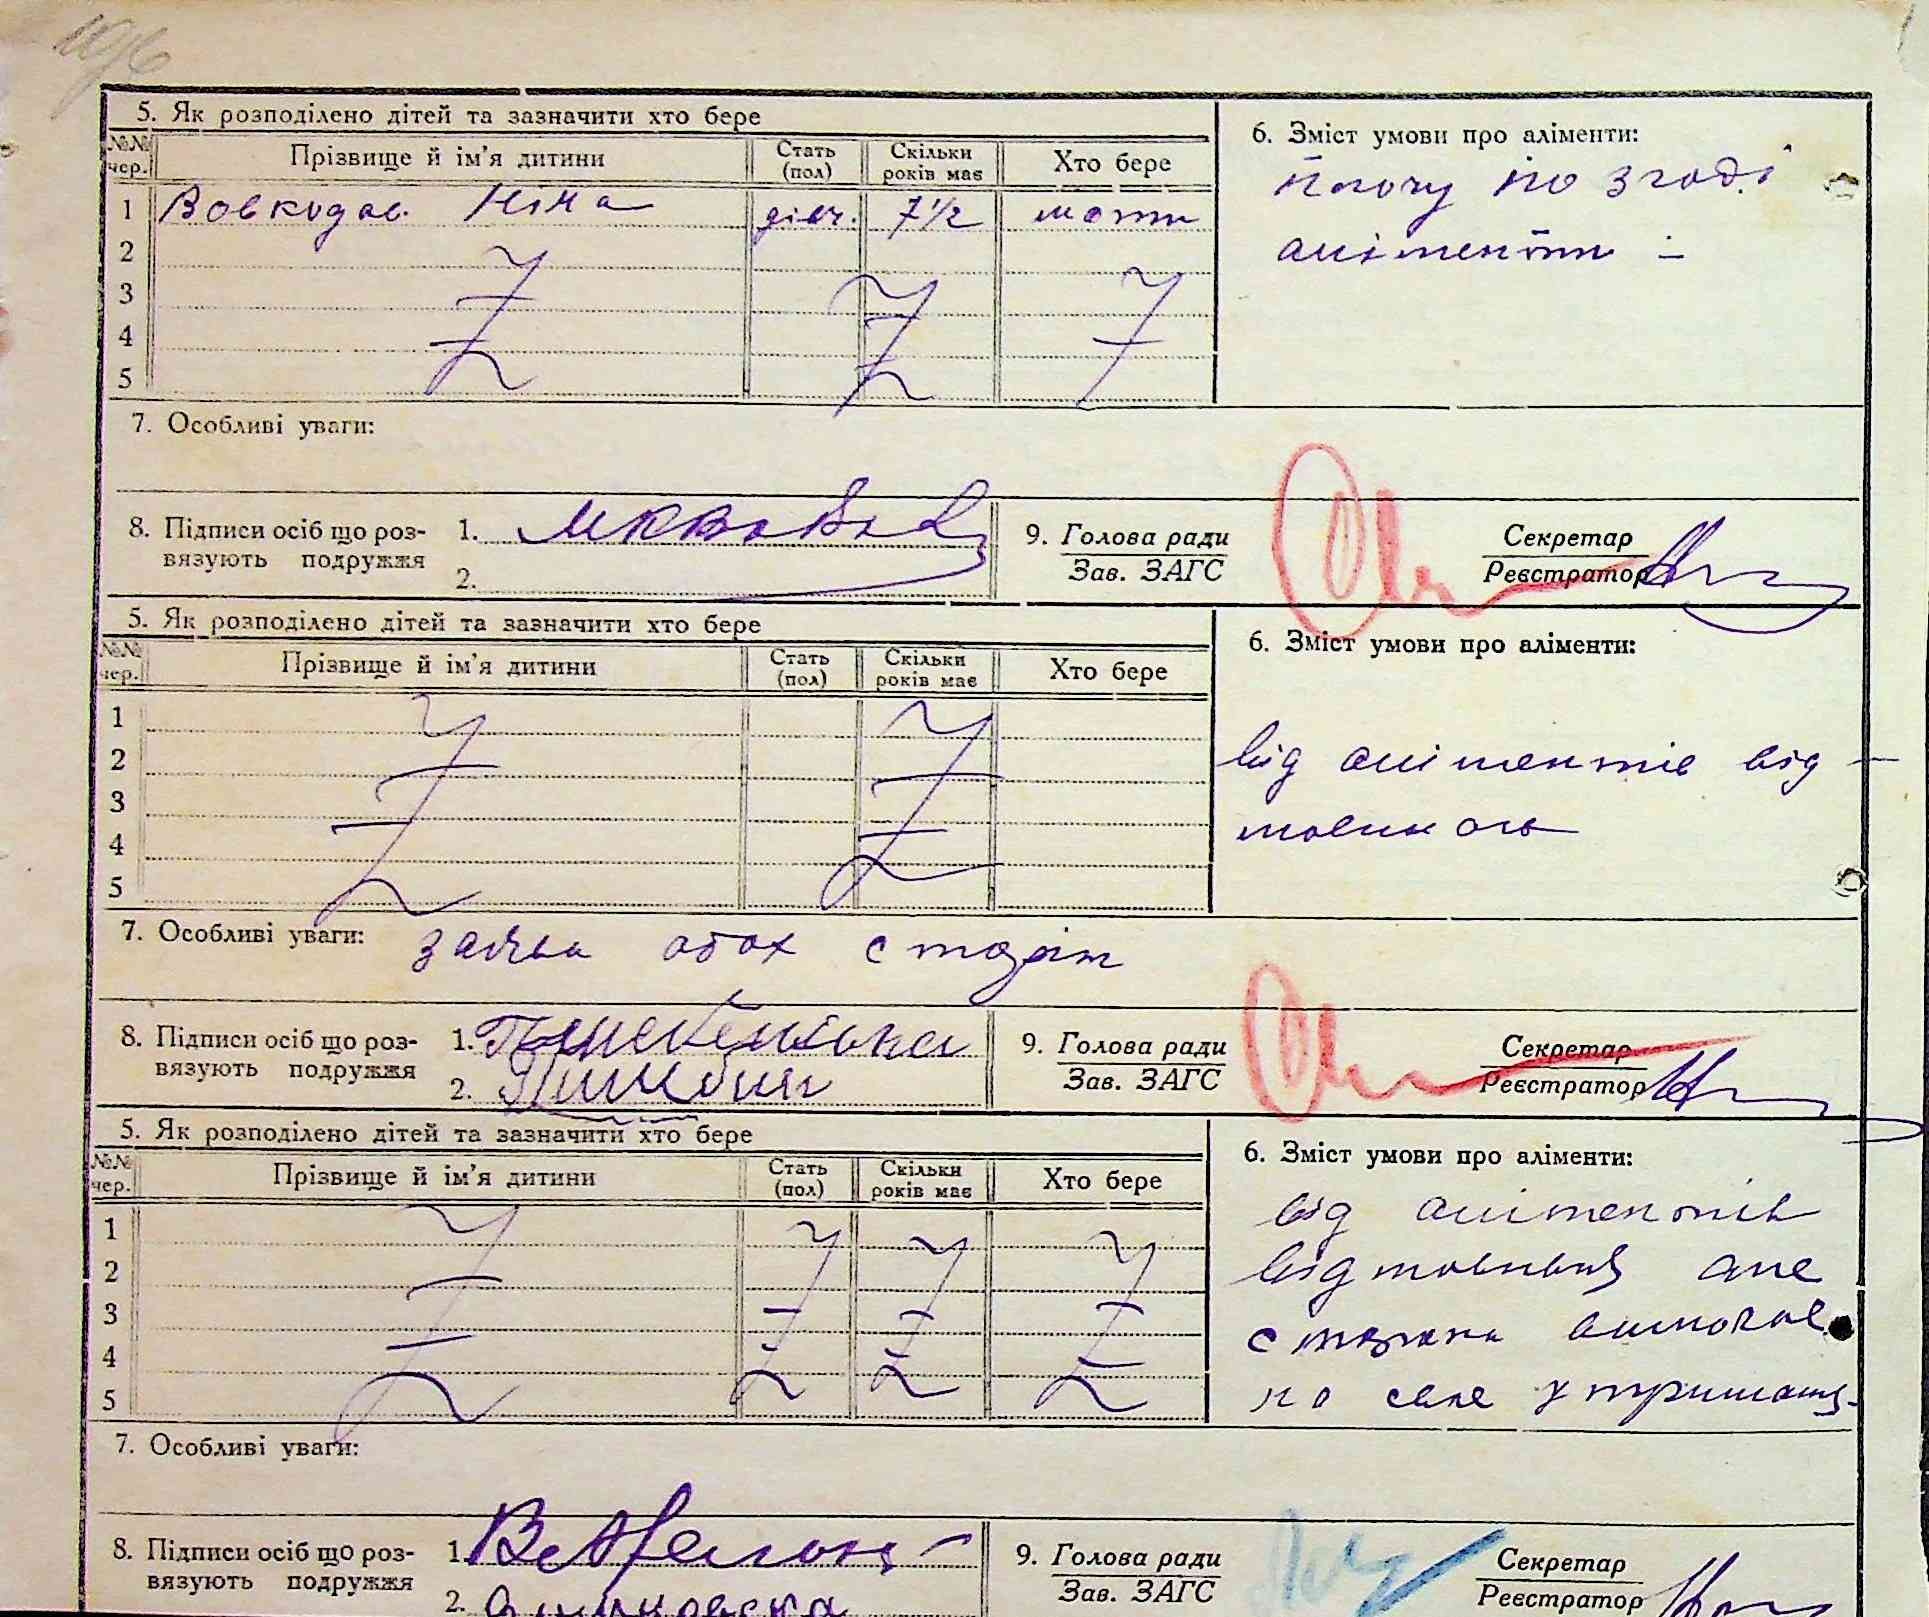 196
5. Як розподілено дітей та зазначити хто бере
№№ чер. Прізвище й ім'я дитини Стать (пол) Скільки років має Хто бере
1 Вовкодав Ніна дівч. 7 1/2 мати
2
3
4
5
6. Зміст умови про аліменти:
по згоді
аліменти
7. Особливі уваги:
8. Підписи осіб що роз-
вязують подружжя
1.
2.
9. Голова ради
Зав. ЗАГС
Секретар
Реєстратор
5. Як розподілено дітей та зазначити хто бере
№№ чер. Прізвище й ім'я дитини Стать (пол) Скільки років має Хто бере
1
2
3
4
5
6. Зміст умови про аліменти:
від аліментів від-
7. Особливі уваги: заява обох сторін
8. Підписи осіб що роз-
вязують подружжя
1.
2.
9. Голова ради
Зав. ЗАГС
Секретар
Реєстратор
5. Як розподілено дітей та зазначити хто бере
№№ чер. Прізвище й ім'я дитини Стать (пол) Скільки років має Хто бере
1
2
3
4
5
6. Зміст умови про аліменти:
від аліментів
але
сторона
на своє
7. Особливі уваги:
8. Підписи осіб що роз-
вязують подружжя
1.
2.
9. Голова ради
Зав. ЗАГС
Секретар
Реєстратор